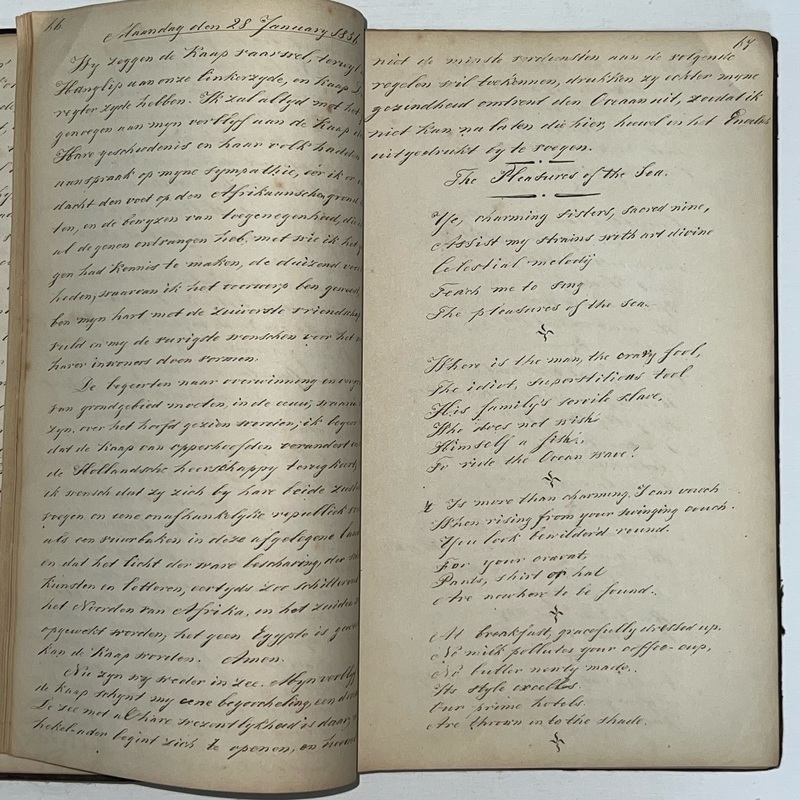 66
Maandag den 28 January 1856
Wy zeggen de Kaap vaarwel, terwyl
Hanglip aan onze linkerzyde, en Kaap
regter zyde hebben. Ik zal altyd met het
genoegen aan myn verblyf aan de Kaap
Hare geschiedenis en haar volk hadden
aanspraak op myne sympathie, eer ik er
dacht den voet op den Afrikaanschen grond
ten, en de bewyzen van toegenegenheid, die
al degenen ontvangen heb, met wie ik het
gen had kennis te maken, de duizend
heden, waarvan ik het voorwerp ben geweest
ben myn hart met de zuiverste vriendschap
vuld en my de vurigste wenschen voor het
harer inwoners doen vormen.
De begeerten naar overwinning en
van grondgebied moeten, in de eeuw, waarin
zyn, over het hoofd gezien worden; ik begeer
dat de Kaap van opperhoofden verandert
de Hollandsche heerschappy terugkeert,
ik wensch dat zy zich by hare beide
voegen en eene onafhankelyke republiek
als een vuurbaken in deze afgelegene
en dat het licht der ware beschaving, der
kunsten en letteren, eertyds zoo schitterend
het Noorden van Afrika, in het zuiden
opgewekt worden, het geen Egypte is
kan de Kaap worden. Amen.
Nu zyn wy weder in zee. Myn verblyf
de Kaap schynt my eene begoocheling, een
De zee met al hare wezentlykheid is daar;
hekel-ader begint zich te openen, en
67
niet de minste verdiensten aan de volgende
regelen wil toekennen, drukken zy echter myne
gezindheid omtrent den Oceaan uit, zoodat ik
niet kan nalaten die hier, hoewel in het Engelsch
uitgedrukt by te voegen.
The Pleasures of the Sea.
Ye, charming sisters, sacred nine,
Assist my strains with art divine
Celestial melody
Teach me to sing
The pleasures of the sea.
Where is the man, the crazy fool,
The idiot, superstitious tool
His family's servile slave,
Who does not wish
Himself a fish,
To ride the Ocean wave!
't Is more than charming I can vouch
When rising from your swinging couch.
You look bewilder'd round.
For your cravat,
Pants, shirt or hat
Are nowhere to be found.
At breakfast, gracefully dressed up,
No milk pollutes your coffee-cup,
No butter newly made.
Its style excellos
Our prime hotels.
Are thrown into the shade.